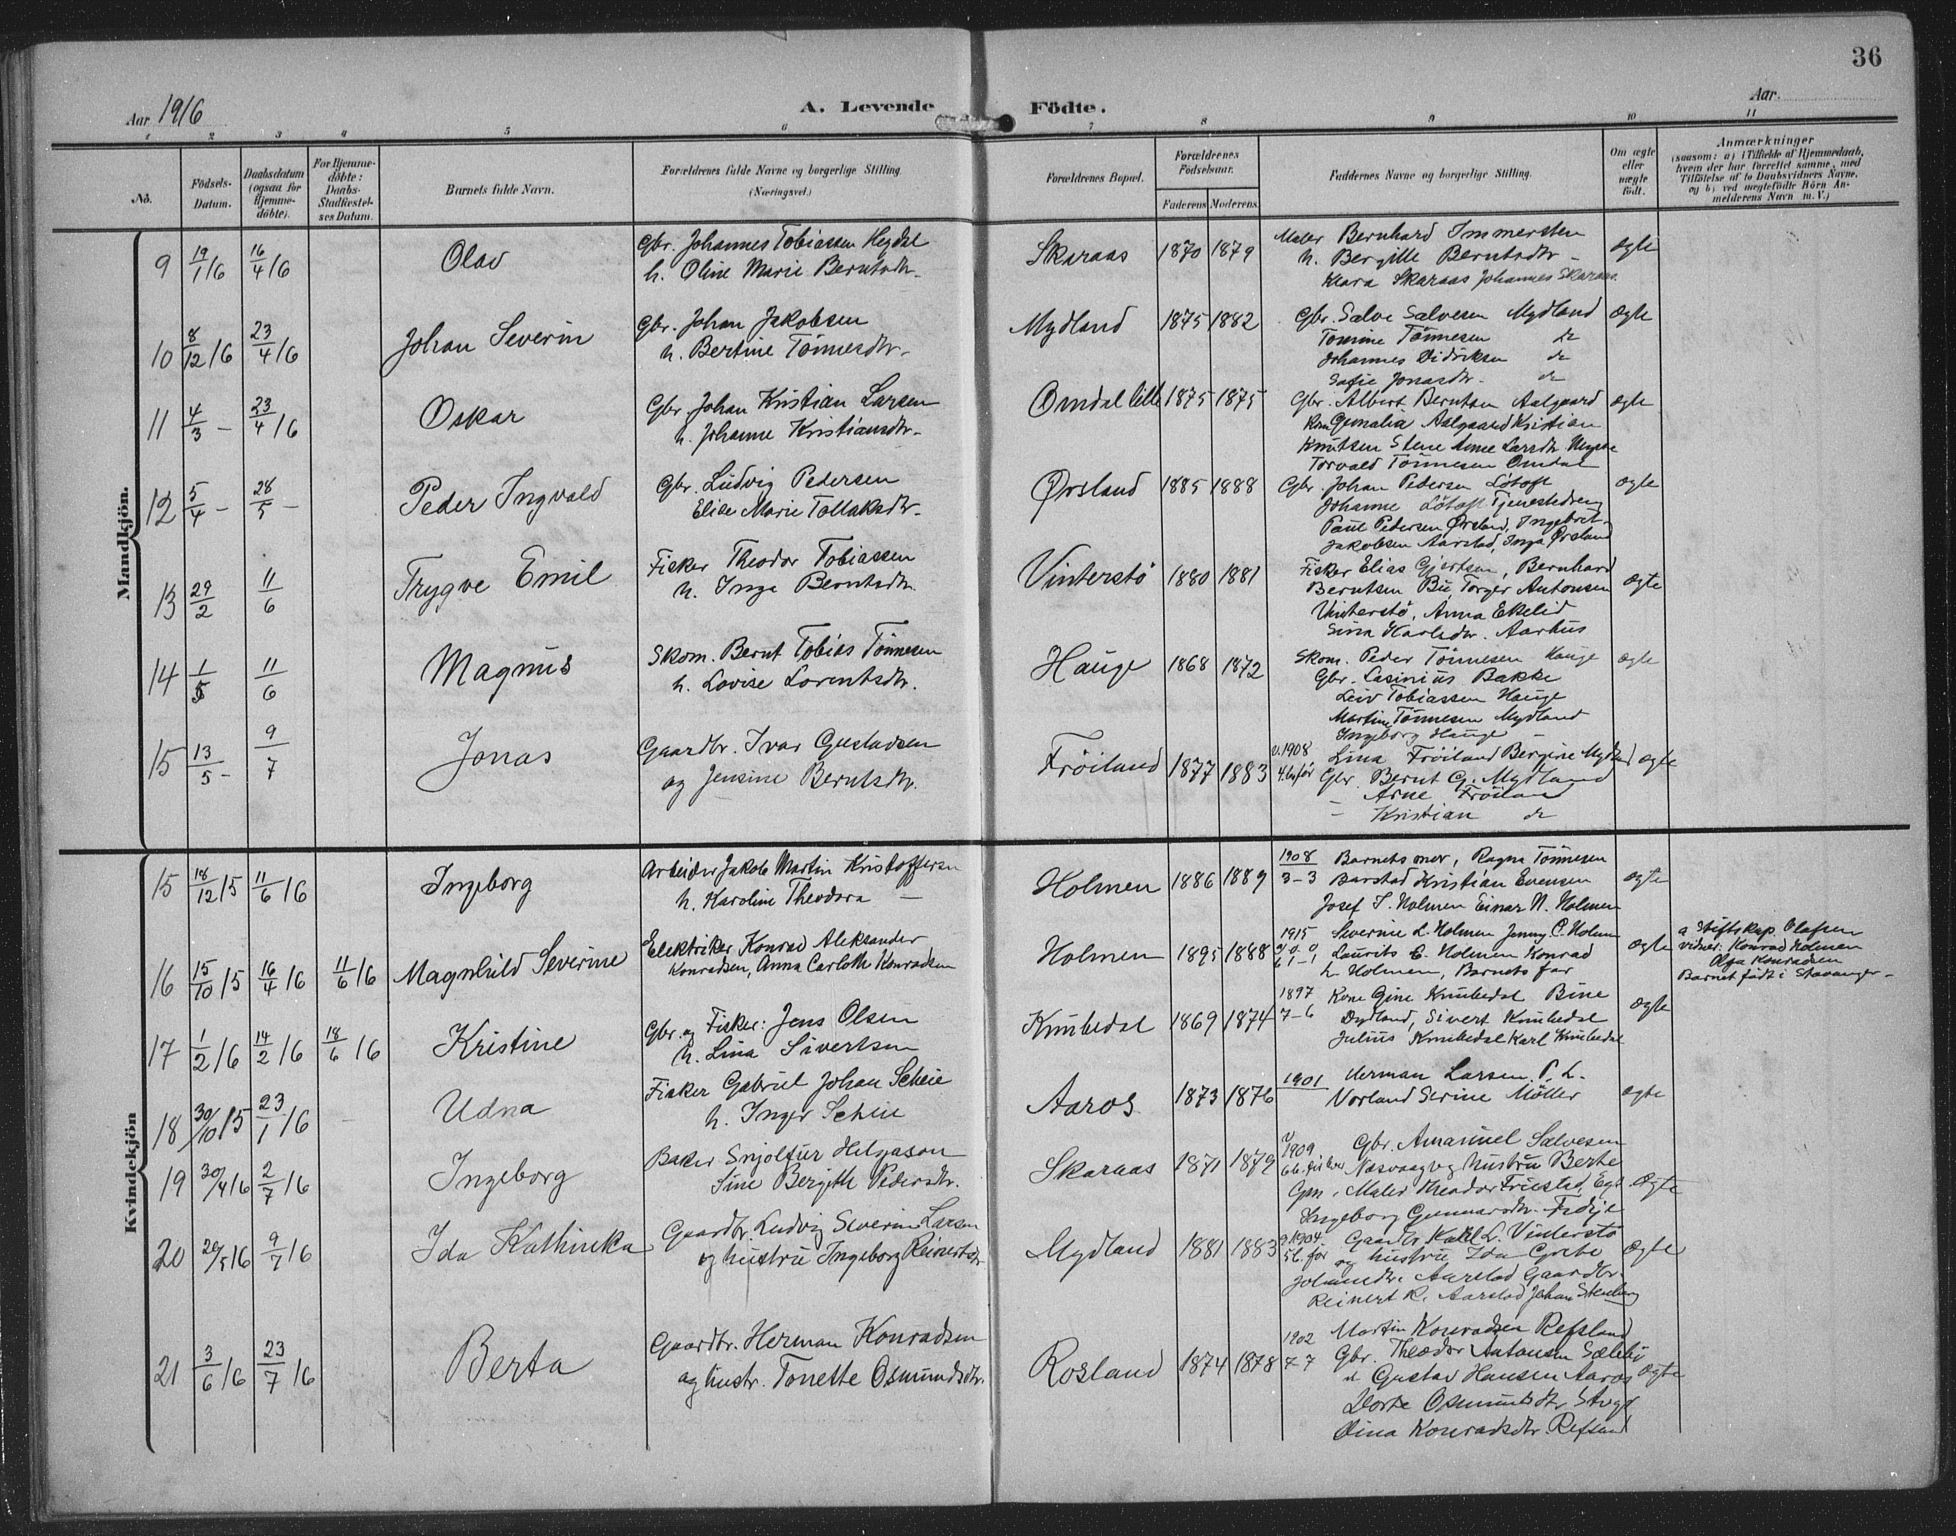 36
Aar 1916
A. Levende Födte.
Aar.
1 2 3 4 5 6 7 8 9 10 11
No.
Födsels-Datum.
Daabsdatum (ogsaa for Hjemme-döbte).
For Hjemme-döbte: Daabs-Stadfæstel-ses Datum.
Barnets fulde Navn.
Forældrenes fulde Navne og borgerlige Stilling. (Næringsvei.)
Forældrenes Bopæl.
Forældrenes Födselsaar.
Faderens. Moderens.
Faddernes Navne og borgerlige Stilling.
Om ægte eller uægte födt.
Anmærkninger
(saasom: a) i Tilfælde af Hjemmedaab, hvem der har forrettet samme, med Tilföielse af to Daabsvidners Navne, og b) ved uægtefödte Börn An-melderens Navn m. V.)
Mandkjön.
9 19/1 16 16/4 16 Olav Gbr. Johannes Tobiassen Heydal
h. Oline Marie Berntsdtr.
Skaraas 1870 1879 Maler Bernhard Immersten
h. Bergitte Berntsdtr
Klara Skaraas Johannes Skaraas
ægte
10 8/12 16 23/4 16 Johan Severin Gbr. Johan Jakobsen
h. Bertine Tönnesdtr.
Mydland 1875 1882 Gbr. Salve Salvesen Mydland
Tomine Tönnesen do
Johannes Didriksen do
Sofie Jonasdtr. do
ægte
11 4/3 - 23/4 16 Oskar Gbr. Johan Kristian Larsen
h. Johanne Kristiansdtr.
Omdal lille 1875 1875 Gbr. Albert Berntsen Aalgaard
Kone Gunalia Aalgaard Kristian
Knutsen Stene Anne Larsdtr.
Torvald Tönnesen Omdal
ægte
12 5/4 - 28/5 - Peder Ingvald Gbr. Ludvig Pedersen
Elise Marie Tollaksdtr.
Ørsland 1885 1888 Gbr. Johan Pedersen Løtoft
Johanne Løtoft Tjenestedreng
Paul Pedersen Ørsland, Ingebret
Jakobsen Aarstad, Inga Ørsland
ægte
13 29/2 11/6 Trygve Emil Fisker Theodor Tobiassen
h. Inga Berntsdtr.
Vinterstö 1880 1881 Fisker Elias Gjertsen, Bernhard
Berntsen Bu, Torger Antonsen
Vinterstö, Anna Ekelid
Sina Karlsdtr. Aarhus
ægte
14 1/5 11/6 Magnus Skom. Bernt Tobias Tönnesen
h. Lovise Lorentsdtr.
Hauge 1868 1872 Skom. Peder Tönnesen Hauge
Gbr. Casinius Bakke
Leiv Tobiassen Hauge
Martine Tönnesen Mydland
Ingeborg Hauge
ægte
15 13/5 - 9/7 Jonas Gaardbr. Ivar Gustadsen
og Jensine Berntsdtr.
Fröiland 1877 1883 v. 1908
Lina Fröiland Bergine Mydland
Gbr. Bernt G. Mydland
- Arne Fröiland
- Kristian do
ægte
Kvindekjön
15 18/12 15 11/6 16 Ingeborg Arbeider Jakob Martin Kristoffersen
h. Karoline Theodora -
Holmen 1886 1889 1908
3-3
Barnets mor, Ragna Tönnesen
Barstad Kristian Evensen
Josef T. Holmen Einar N. Holmen
ægte
16 15/10 15 16/4 16 11/6 16 Magnhild Severine Elektriker Konrad Aleksander
Konradsen, Anna Carloth Konradsen
Holmen 1895 1888 1915
Severine L Holmen Jenny C. Holmen
Laurits E. Holmen Konrad
L Holmen, Barnets far
ægte
a Stiftskap. Olafsen
vidner: Konrad Holmen
Olga Konradsen
Barnet født i Stavanger -
17 1/2 16 14/2 16 18/6 16 Kristine Gbr. og Fisker: Jens Olsen
h. Lina Sivertsen
Knubedal 1869 1874 1897
7-6
Kone Gine Knubedal Bine
Dydland, Sivert Knubedal
Julius Knubedal Karl Knubedal
ægte
18 30/10 15 23/1 16 Udna Fisker Gabriel Johan Scheie
h. Inger Scheie
Aaros 1873 1876 1901
Herman Larsen P. L.
Norland Serine Möller
ægte
19 30/4 16 2/7 16 Ingeborg Baker Snjolfur Helgason
Sine Bergith Pedersdtr.
Skaraas 1871 1879 v 1909
Gbr. Amanuel Salvesen
Aasvaag og hustru Berte
Gpn. Maler Theodor Friestad, Eg.
Ingeborg Gunnarsdtr. Fidje
Ægte
20 20/5 16 9/7 16 Ida Kathinka Gaardbr. Ludvig Severin Larsen
og hustru Ingeborg Reinertsdtr
Mydland 1881 1883 1904
Gaardbr Karl L. Vinterstö
og hustru Ida Grebe
Johannesdtr. Aarstad Gaardbr.
Reinert R. Aarstad Johan Stenberg
Ægte
21 3/6 16 23/7 16 Berta Gaardbr. Herman Konradsen
og hustr. Tonette Osmundsdtr.
Rosland 1874 1878 1902
7-7
Martin Konradsen Refsland
Gbr. Theodor Antonsen Sælebö
d Gustav Hansen Aaros
Dorte Osmundsdtr
Dina Konradsdtr. Refsland
Ægte